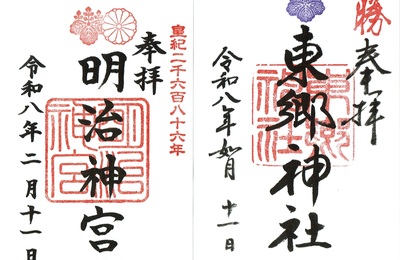 勝
奉拝
東郷神社
東郷神社
令和八年如月十一日
皇紀二千六百八十六年
奉拝
明治神宮
明治神宮
令和八年二月十一日